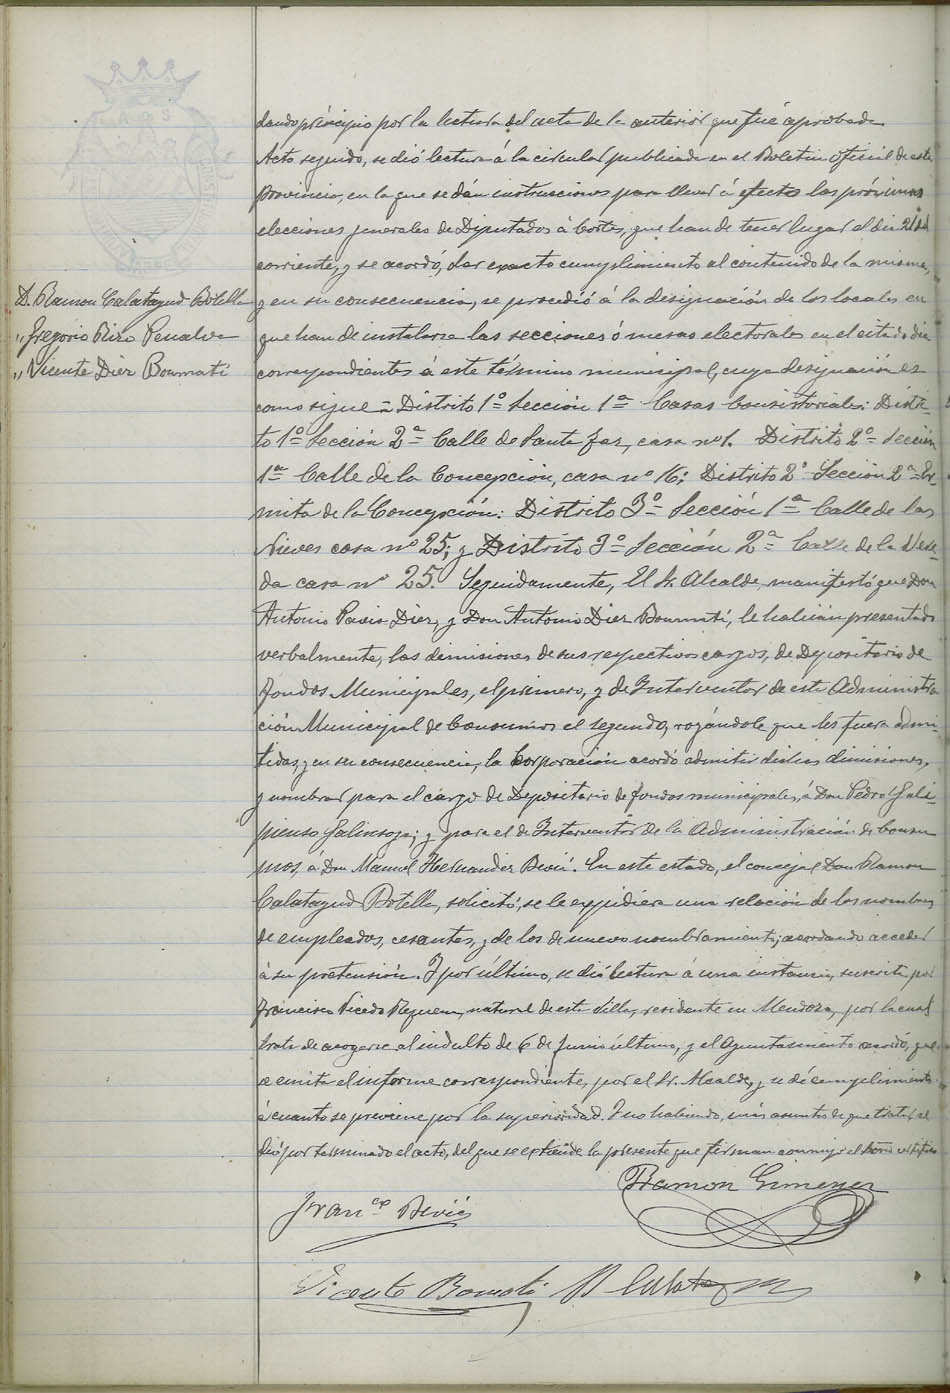 D. Ramon Calatayud Botella
„ Gregorio Rizo Penalva
„ Vicente Diez Boumati
dando principio por la lectura del acta de la anterior que fué aprobada
Acto seguido, se dió lectura á la circular publicada en el Boletin oficial de esta
provincia, en la que se dán instrucciones para llevar á efecto las próximas
elecciones generales de Diputados á Cortes, que han de tener lugar el dia 21 del
corriente, y se acordó, dar exacto cumplimiento al contenido de la misma,
y en su consecuencia, se procedió á la designación de los locales en
que han de instalarse las secciones ó mesas electorales en el citado dia
correspondientes á este término municipal, cuya designación es
como sigue = Distrito 1º Sección 1ª Casas Consistoriales: Distri-
to 1º Sección 2ª Calle de Santa faz, casa nº 1. Distrito 2º Sección
1ª Calle de la Concepción, casa nº 16: Distrito 2º Sección 2ª Er-
mita de la Concepción: Distrito 3º Sección 1ª Calle de las
Nieves casa nº 25; y Distrito 3º Sección 2ª Calle de la Vere-
da casa nº 25. Seguidamente, El Sr. Alcalde, manifestó que Don
Antonio Pavia Diez, y Don Antonio Diez Boumati, le habian presentado
verbalmente, las dimisiones de sus respectivos cargos, de Depositario de
fondos Municipales, el primero, y de Interventor de esta Administra
ción Municipal de Consumos el segundo, rogándole que les fuera admi-
tidas, y en su consecuencia, la Corporación acordó admitir dichas dimisiones,
y nombrar para el cargo de Depositario de fondos municipales, á Don Pedro Gali-
pienso Galinsoga; y para el de Interventor de la Administración de Consu
mos, á Don Manuel Hernandez Beviá. En este estado, el concejal Don Ramon
Calatayud Botella, solicitó, se le expidiera una relación de los nombres
de empleados, cesantes, y de los de nuevo nombramiento; acordando acceder
á su pretensión. Y por último, se dió lectura á una instancia, suscrita por
Francisco Vicedo Requena, natural de esta Villa, residente en Mendoza, por la cual
trata de acogerse al indulto de 6 de Junio último, y el Ayuntamiento acordó, que
se emita el informe correspondiente, por el Sr. Alcalde, y se dé cumplimiento
á cuanto se previene por la superioridad. Y no habiendo, más asunto de que tratar se
dió por terminado el acto, del que se extiende la presente que firman conmigo el certifico
Ramon Gimenez
Franco Beviá
Vicente Boumati R Calatayud